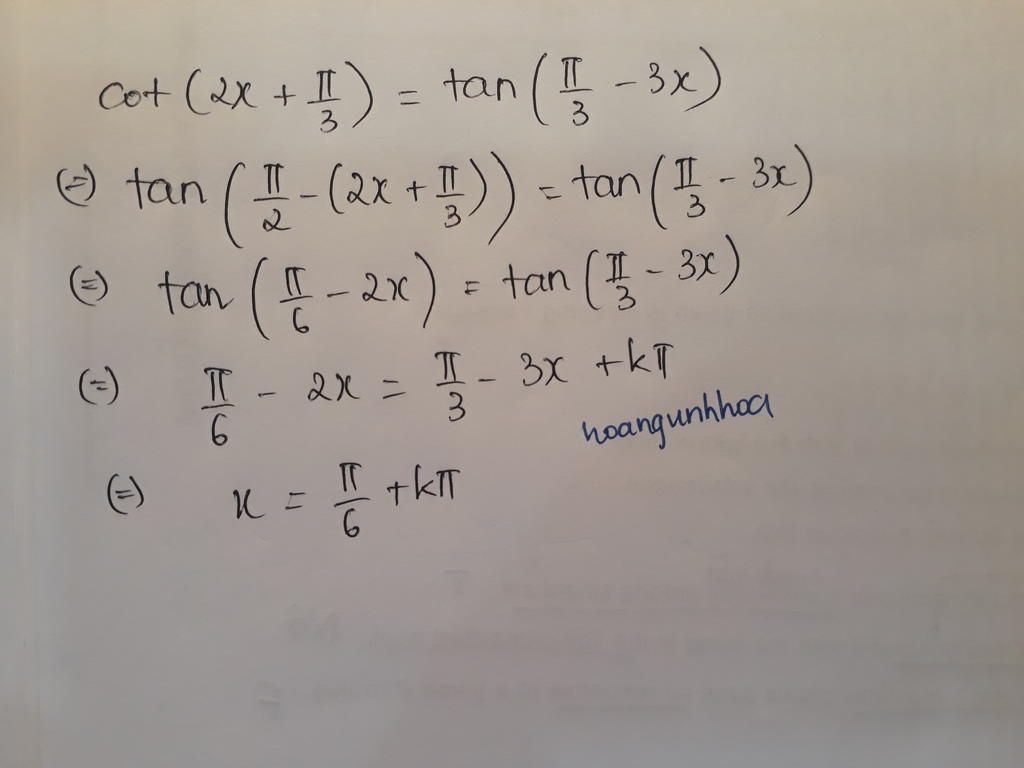 cot (2x + π/3) = tan (π/3 - 3x)
(=) tan (π/2 - (2x + π/3)) = tan (π/3 - 3x)
(=) tan (π/6 - 2x) = tan (π/3 - 3x)
(=) π/6 - 2x = π/3 - 3x + kπ
hoangunhhoa
(=) x = π/6 + kπ